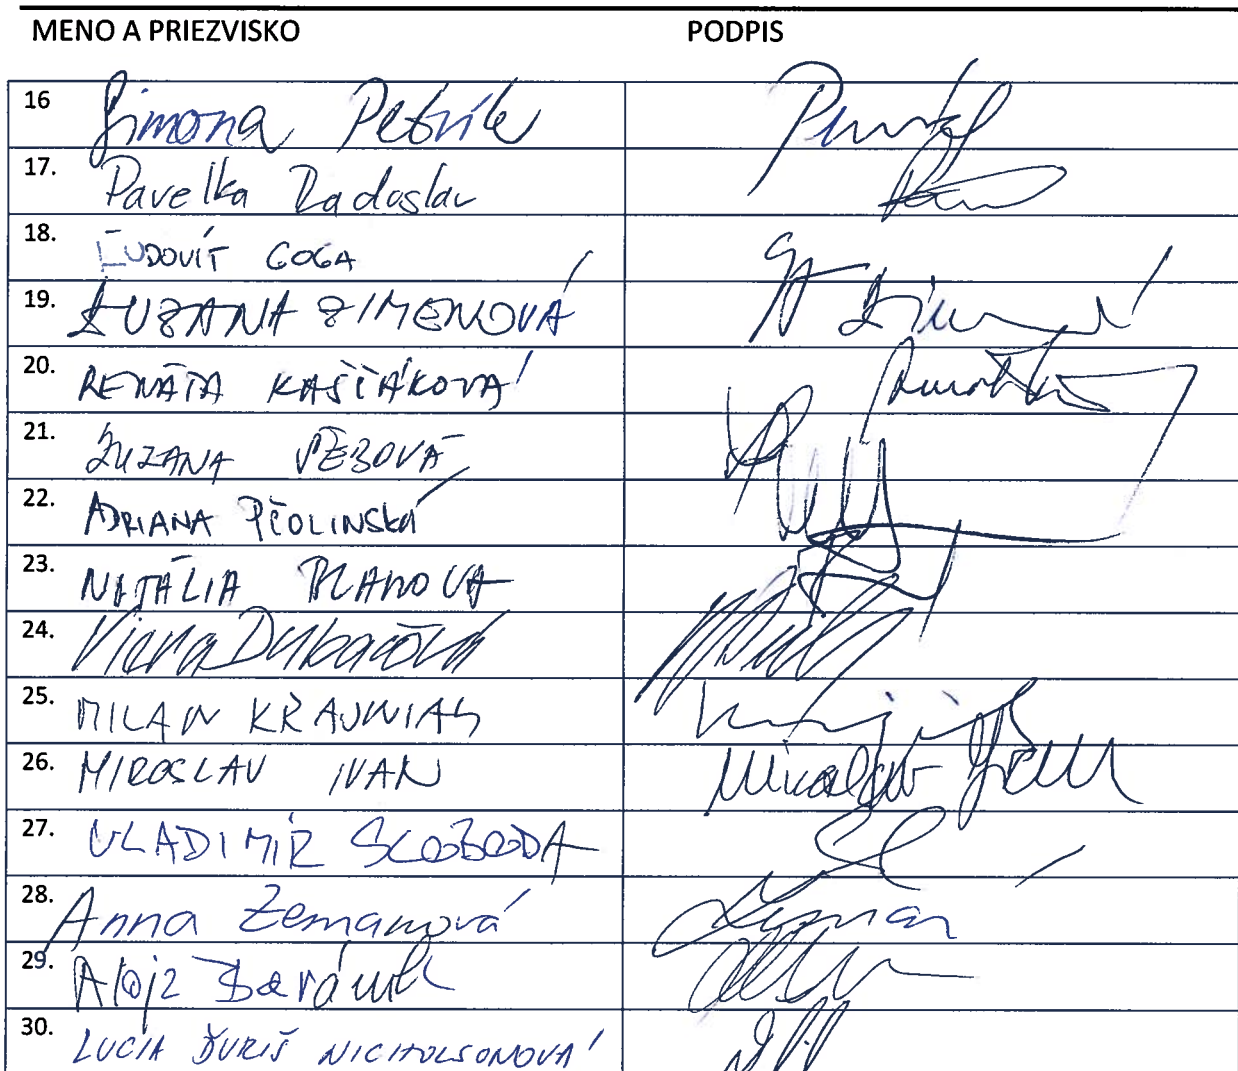 MENO A PRIEZVISKO PODPIS
16 Simona Petrík
17. Pavelka Radoslav
18. ĽUDOVÍT GOGA
19. ZUZANA ZIMENOVÁ
20. RENÁTA KAŠČÁKOVÁ
21. ZUZANA ŠEBOVÁ
22. ADRIANA PČOLINSKÁ
23. NATÁLIA BLAHOVA
24. Viera Dubačová
25. MILAN KRAJNIAK
26. MIROSLAV IVAN Miroslav Ivan
27. VLADIMÍR SLOBODA
28. Anna Zemanová
29. Alojz Baránik
30. LUCIA ĎURIŠ NICHOLSONOVÁ